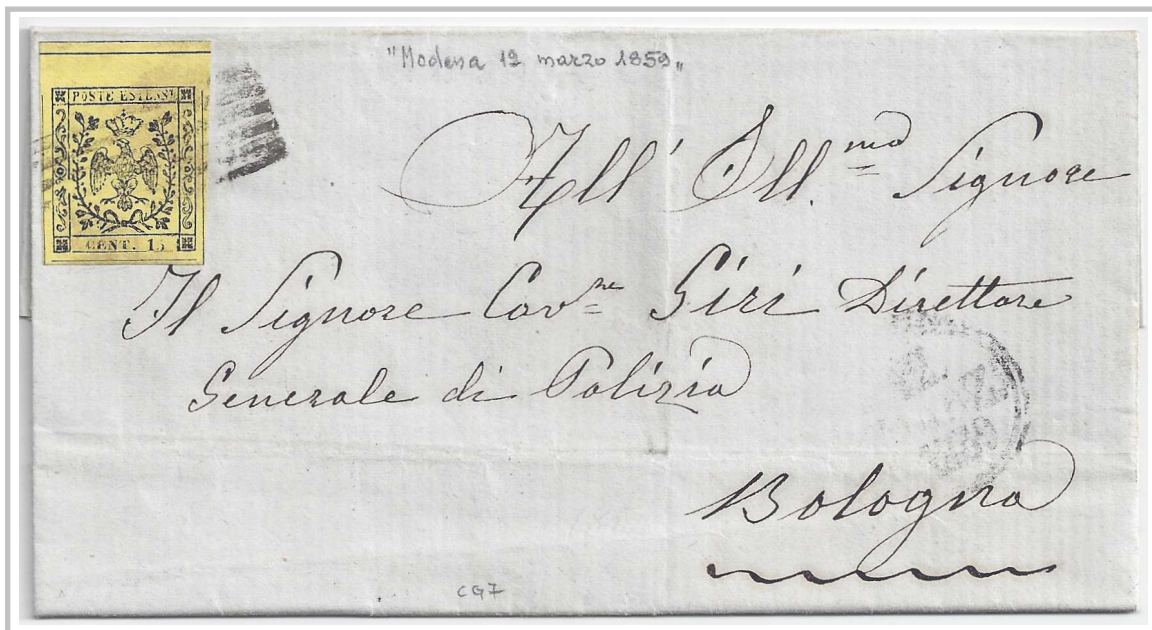 "Modena 12 marzo 1859"
POSTE ESTENSI
CENT. 15
All' Ill.mo Signore
Il Signore Cav.re Siri Direttore
Generale di Polizia
Bologna
CG7